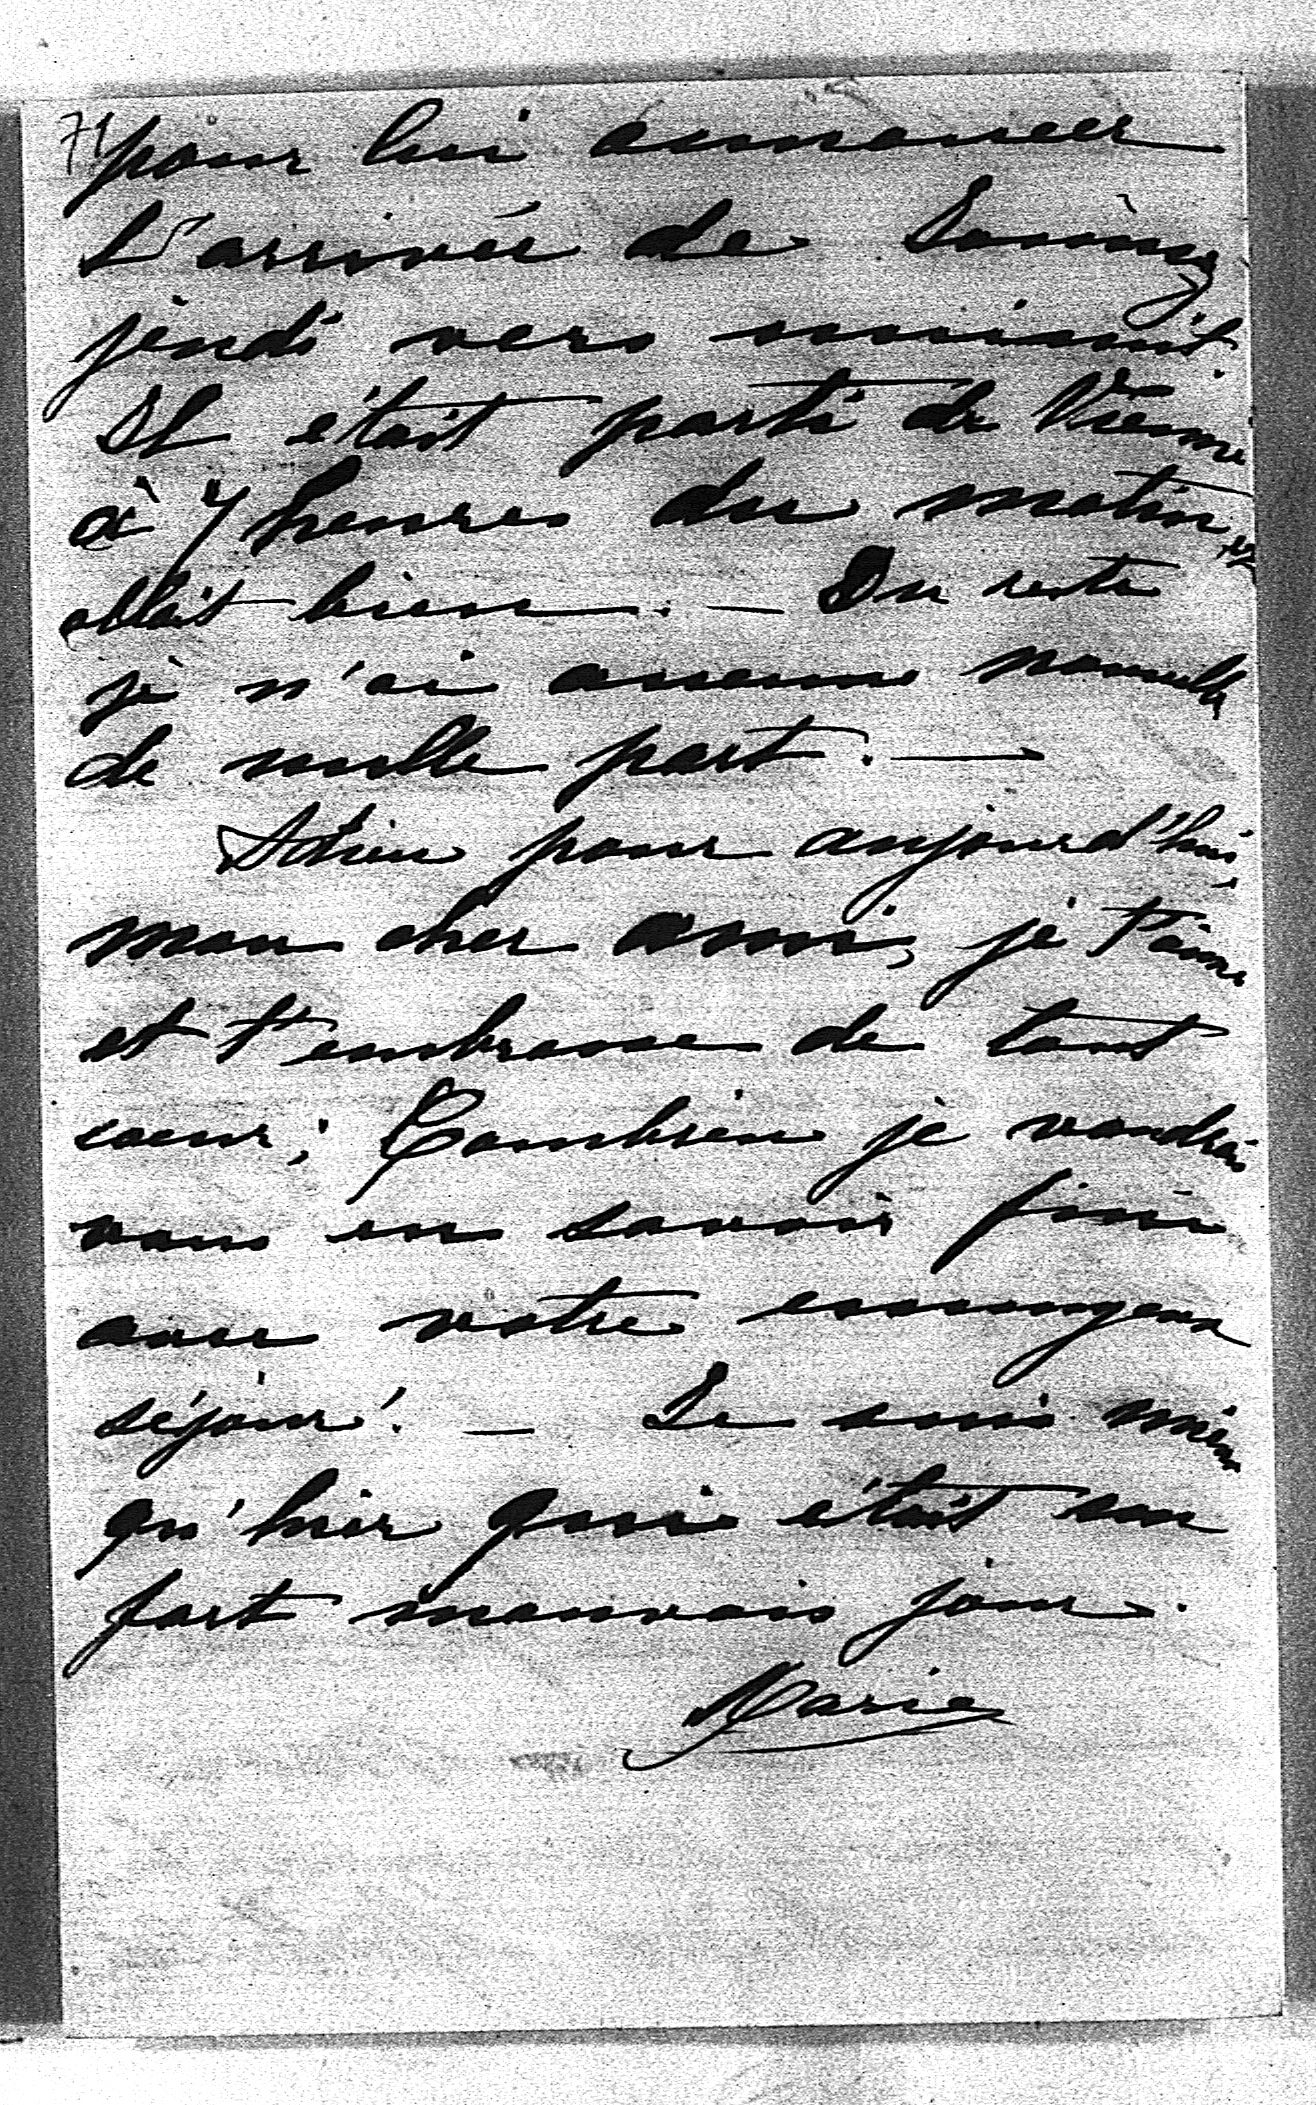 71
pour lui annoncer
L'arrivée de
jeudi vers minuit.
Il était parti de Vienne
à 7 heures du matin et
allait bien. — Du reste
je n'ai aucune nouvelle
de nulle part. —
Adieu pour aujourd'hui,
mon cher ami, je t'aime
et t'embrasse de tout
coeur; Combien je voudrais
vous en savoir fini
avec votre ennuyeux
séjour! — Je suis mieux
qu'hier qui était un
fort mauvais jour.
Marie